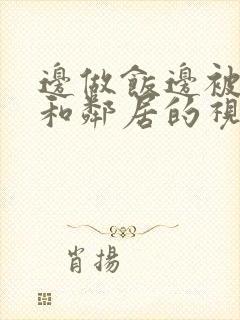 邊做飯邊被
和鄰居的視
肖揚